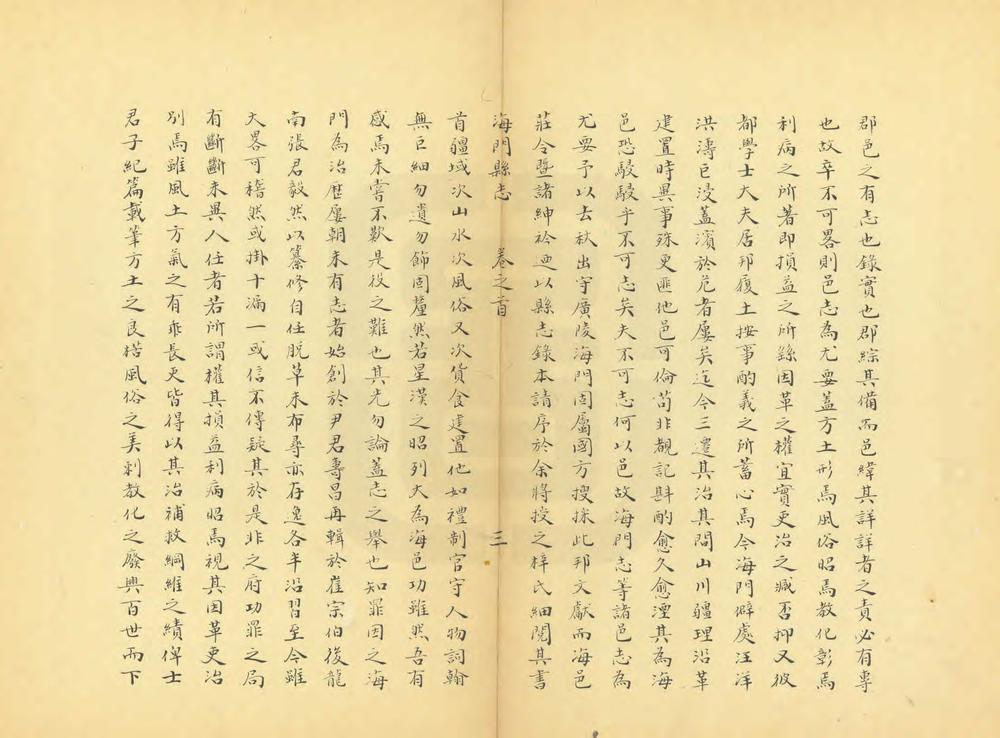 郡邑之有志也錄實也郡綜其備而邑緯其詳詳者之責必有專
也故卒不可畧則邑志為尤要蓋方土形焉風俗昭焉教化彰焉
利病之所著即損益之所繇因革之權宜實吏治之臧否抑又彼
都學士大夫居邦履土按事酌義之所蓄心焉今海門僻處汪洋
洪濤巨浸蓋濱於危者屢矣迄今三遷其治其間山川疆理沿革
建置時異事殊更匪他邑可倫苟非覩記斟酌愈久愈湮其為海
邑恐駸駸乎不可志矣夫不可志何以邑故海門志等諸邑志為
尤要予以去秋出守廣陵海門固屬國方搜採此邦文獻而海邑
莊令暨諸紳衿迺以縣志錄本請序於余將授之梓氏細閱其書
海門縣志 卷之首 三
首疆域次山水次風俗又次貨食建置他如禮制官守人物詞翰
無巨細勿遺勿飾固釐然若星漢之昭列大為海邑功雖然吾有
感焉未嘗不歎是役之難也其尤勿論蓋志之舉也知罪因之海
門為治歷屢朝未有志者始創於尹君壽昌再輯於崔宗伯後龍
南張君毅然以纂修自任脫草未布尋亦存逸各半沿習至今雖
大畧可稽然或掛十漏一或信不傳疑其於是非之府功罪之局
有斷斷未異人任者若所謂權其損益利病昭焉視其因革更治
別焉雖風土方氣之有乖長吏皆得以其治補救綱維之績俾士
君子紀篇載筆方土之良楛風俗之美刺教化之廢興百世而下